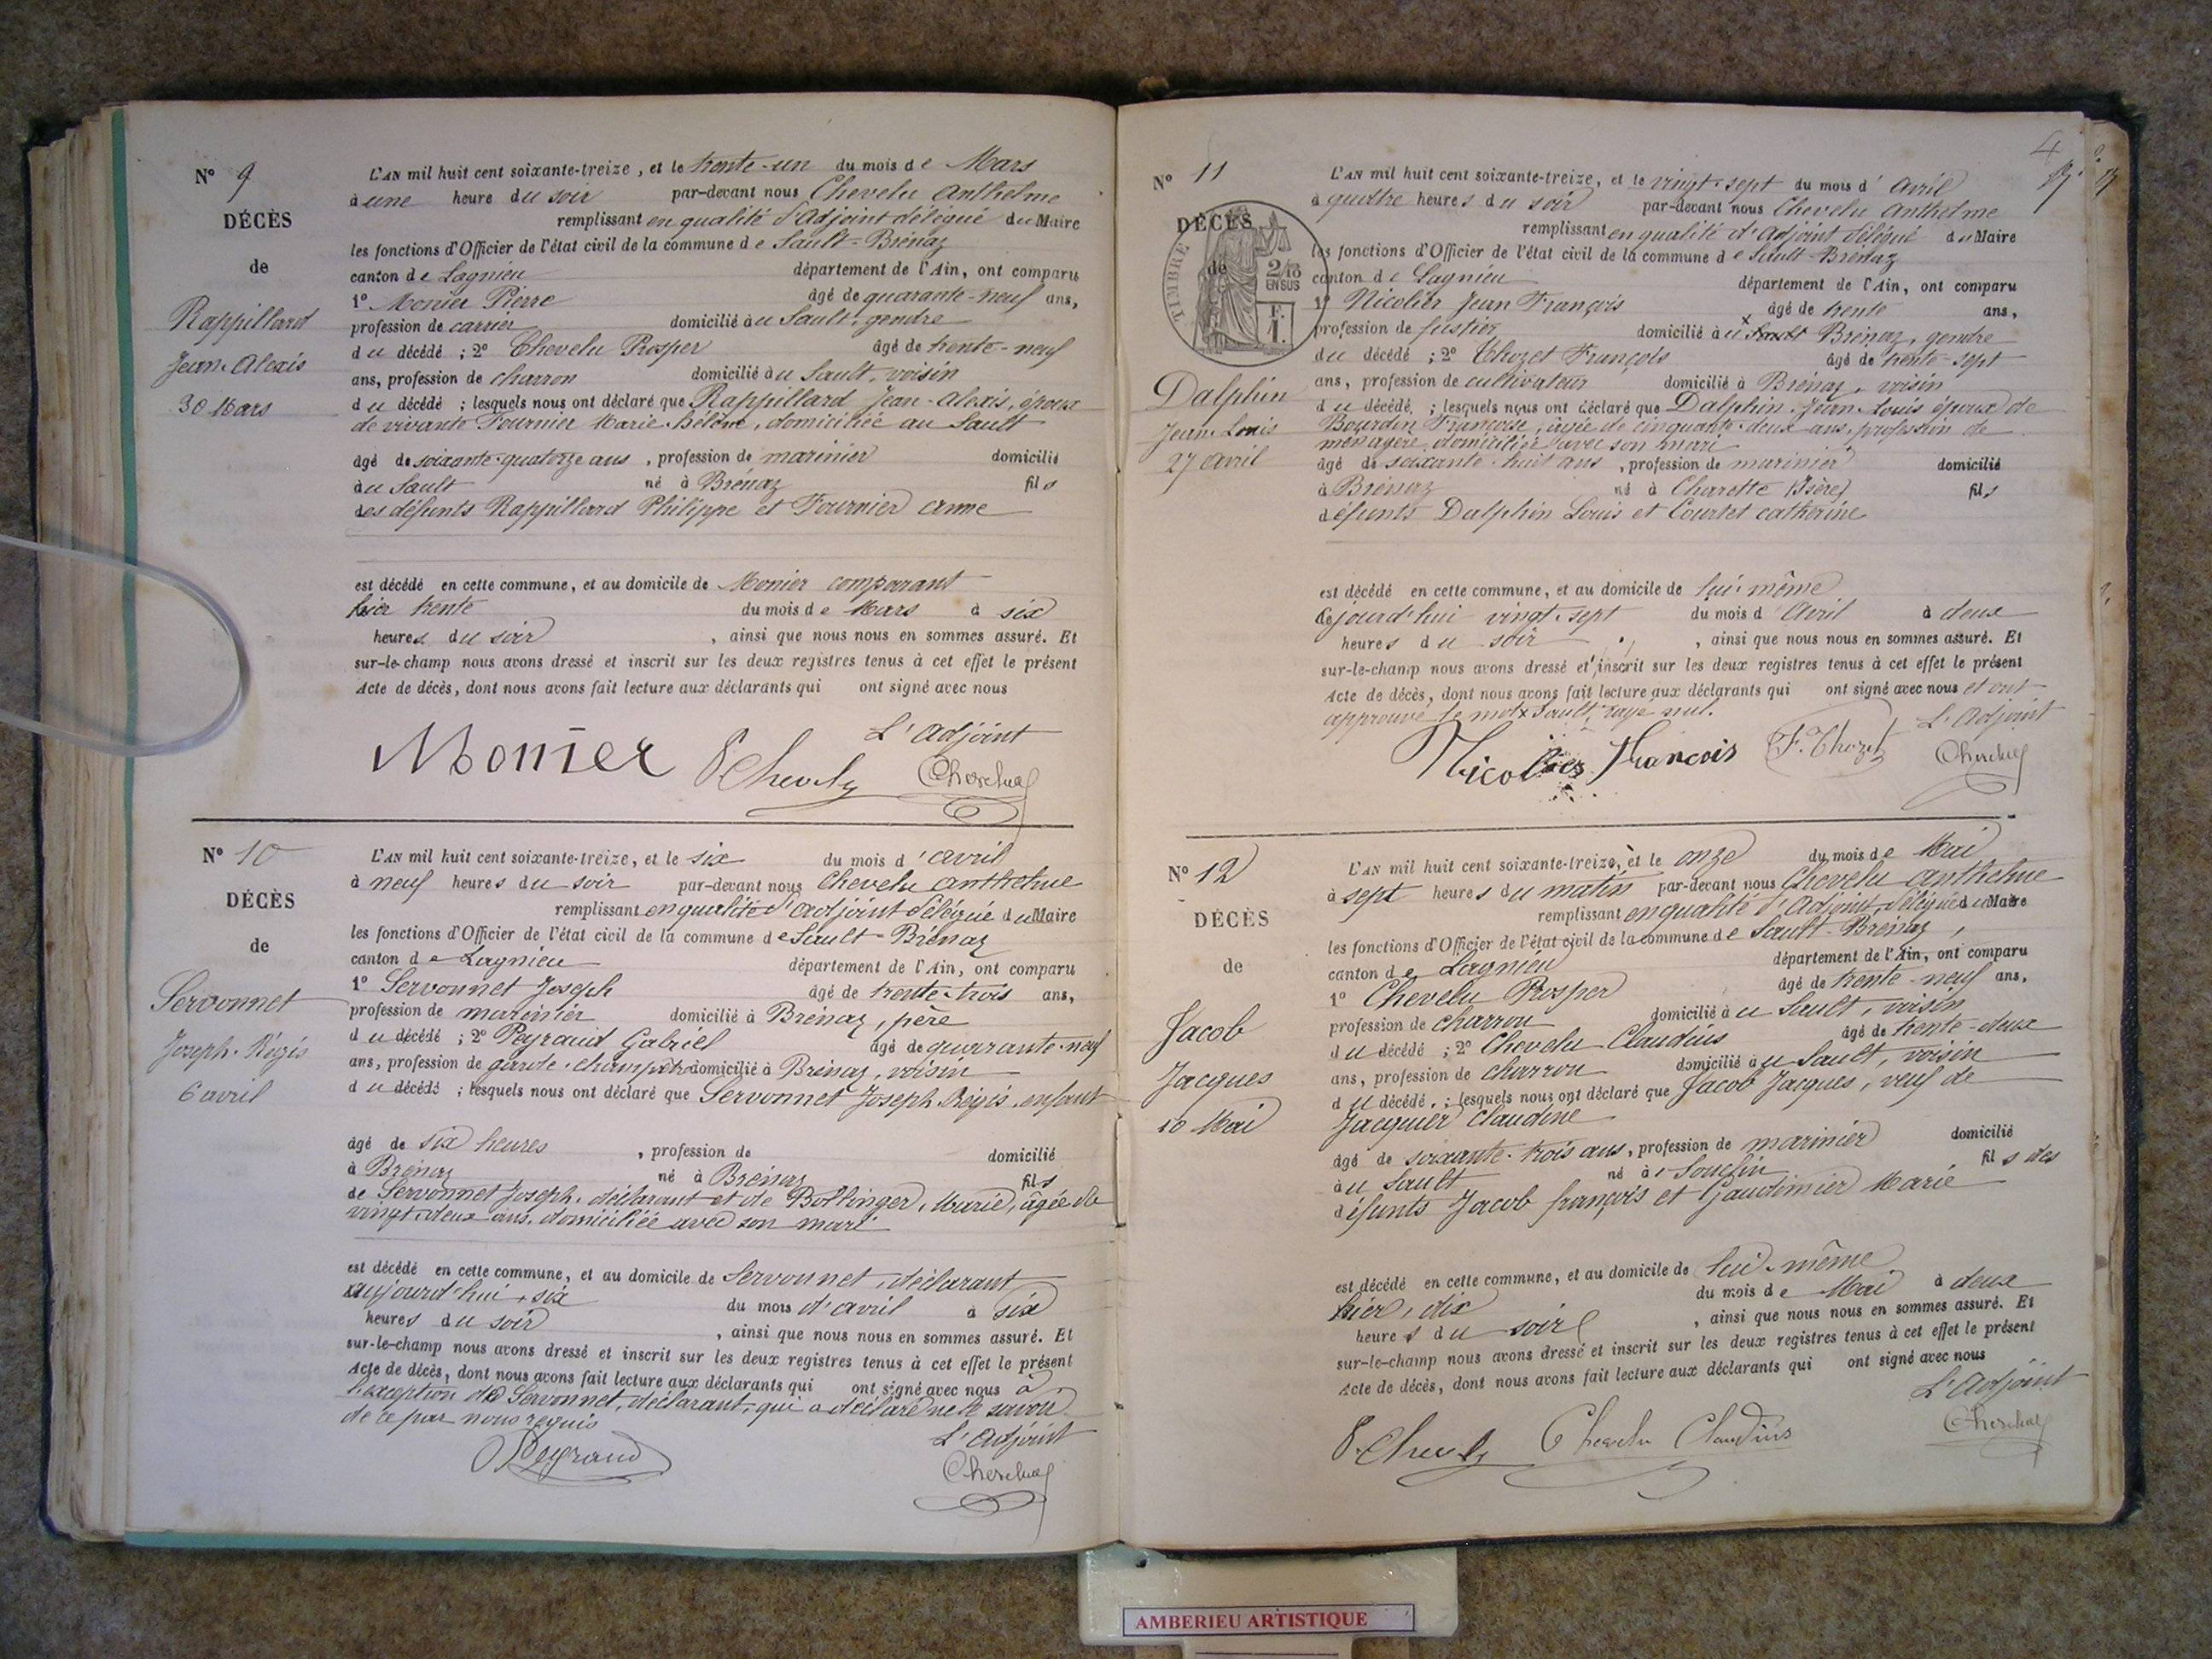 Nº 9
DÉCÈS
de
Rappillard
Jean-Alexis
30 Mars
L'AN mil huit cent soixante-treize, et le trente-un du mois de Mars
à une heure du soir par-devant nous Chevelu Anthelme
remplissant en qualité d'Adjoint délégué du Maire
les fonctions d'Officier de l'état civil de la commune de Sault-Brénaz
canton de Lagnieu département de l'Ain, ont comparu
1º Monier Pierre âgé de quarante-neuf ans,
profession de carrier domicilié au Sault, gendre
du décédé ; 2º Chevelu Prosper âgé de trente-neuf
ans, profession de charron domicilié au Sault, voisin
du décédé ; lesquels nous ont déclaré que Rappillard Jean-Alexis, époux
de vivante Fournier Marie-hélène, domiciliée au Sault
âgé de soixante-quatorze ans, profession de marinier domicilié
au Sault né à Brénaz fils
des défunts Rappillard Philippe et Fournier Anne
est décédé en cette commune, et au domicile de Monier comparant
hier trente du mois de Mars à six
heures du soir, ainsi que nous nous en sommes assuré. Et
sur-le-champ nous avons dressé et inscrit sur les deux registres tenus à cet effet le présent
Acte de décès, dont nous avons fait lecture aux déclarants qui ont signé avec nous
L'Adjoint
Monier P Chevelu Chevelu
Nº 10
DÉCÈS
de
Servonnet
Joseph-Régis
6 avril
L'AN mil huit cent soixante-treize, et le six du mois d'avril
à neuf heures du soir par-devant nous Chevelu Anthelme
remplissant en qualité d'Adjoint délégué du Maire
les fonctions d'Officier de l'état civil de la commune de Sault-Brénaz
canton de Lagnieu département de l'Ain, ont comparu
1º Servonnet Joseph âgé de trente-trois ans,
profession de marinier domicilié à Brénaz, père
du décédé ; 2º Peyraud Gabriel âgé de quarante-neuf
ans, profession de garde-champêtre domicilié à Brénaz, voisin
du décédé ; lesquels nous ont déclaré que Servonnet Joseph-Régis, enfant
âgé de six heures, profession de domicilié
à Brénaz né à Brénaz fils
de Servonnet Joseph, déclarant et de Bollinger, Marie, âgée de
vingt-deux ans, domiciliée avec son mari
est décédé en cette commune, et au domicile de Servonnet, déclarant
aujourd'hui, six du mois d'avril à six
heures du soir, ainsi que nous nous en sommes assuré. Et
sur-le-champ nous avons dressé et inscrit sur les deux registres tenus à cet effet le présent
Acte de décès, dont nous avons fait lecture aux déclarants qui ont signé avec nous à
l'exception de Servonnet, déclarant, qui a déclaré ne le savoir
de ce par nous requis
L'Adjoint
Peyraud Chevelu
4
Nº 11
DÉCÈS
de
TIMBRE
2/10
EN SUS
F.
1.
Dalphin
Jean-Louis
27 avril
L'AN mil huit cent soixante-treize, et le vingt-sept du mois d'Avril
à quatre heures du soir par-devant nous Chevelu Anthelme
remplissant en qualité d'Adjoint délégué du Maire
les fonctions d'Officier de l'état civil de la commune de Sault-Brénaz
canton de Lagnieu département de l'Ain, ont comparu
1º Nicolier Jean François âgé de trente ans,
profession de fustier domicilié au x Sault Brénaz, gendre
du décédé ; 2º Thozet François âgé de trente-sept
ans, profession de cultivateur domicilié à Brénaz, voisin
du décédé ; lesquels nous ont déclaré que Dalphin Jean-Louis époux de
Bourdin Françoise, âgée de cinquante-deux ans, profession de
ménagère, domiciliée avec son mari
âgé de soixante-huit ans, profession de marinier domicilié
à Brénaz né à Charette (Isère) fils
défunts Dalphin Louis et Courtet Catherine
est décédé en cette commune, et au domicile de lui-même
cejourd'hui vingt-sept du mois d'Avril à deux
heures du soir, ainsi que nous nous en sommes assuré. Et
sur-le-champ nous avons dressé et inscrit sur les deux registres tenus à cet effet le présent
Acte de décès, dont nous avons fait lecture aux déclarants qui ont signé avec nous et ont
approuvé le mot x Sault rayé nul.
L'Adjoint
Nicolier François F. Thozet Chevelu
Nº 12
DÉCÈS
de
Jacob
Jacques
10 Mai
L'AN mil huit cent soixante-treize, et le onze du mois de Mai
à sept heures du matin par-devant nous Chevelu Anthelme
remplissant en qualité d'Adjoint délégué du Maire
les fonctions d'Officier de l'état civil de la commune de Sault-Brénaz,
canton de Lagnieu département de l'Ain, ont comparu
1º Chevelu Prosper âgé de trente-neuf ans,
profession de charron domicilié au Sault, voisin
du décédé ; 2º Chevelu Claudius âgé de trente-deux
ans, profession de charron domicilié au Sault, voisin
du décédé ; lesquels nous ont déclaré que Jacob Jacques, veuf de
Jacquier Claudine
âgé de soixante-trois ans, profession de marinier domicilié
au Sault né à Souclin fils des
défunts Jacob françois et Gaudimier Marie
est décédé en cette commune, et au domicile de lui-même
hier, dix du mois de Mai à deux
heures du soir, ainsi que nous nous en sommes assuré. Et
sur-le-champ nous avons dressé et inscrit sur les deux registres tenus à cet effet le présent
Acte de décès, dont nous avons fait lecture aux déclarants qui ont signé avec nous
L'Adjoint
P. Chevelu Chevelu Claudius Chevelu
AMBERIEU ARTISTIQUE